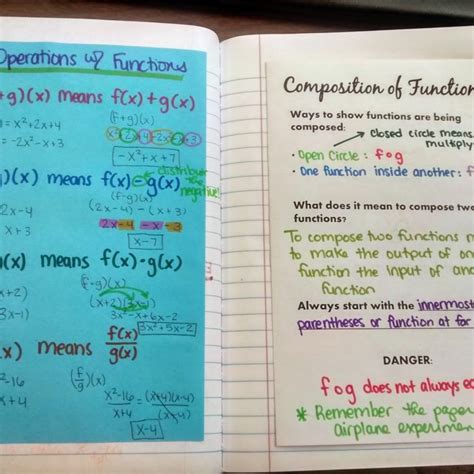 Operations w/ Functions
+g)(x) means f(x)+g(x)
(f+g)(x)
= x²+2x+4
= -2x²-x+3
-x²+x+7
)(x) means f(x)-g(x)
distribute the negative!
(f-g)(x)
2x-4
(2x-4)-(x+3)
x+3
2x-4-x-3
x-7
)(x) means f(x)·g(x)
(f·g)(x)
x+2)
(x+2)(3x-1)
3x-1)
3x²-x+6x-2
3x²+5x-2
x) means f(x)/g(x)
x²-16
(f/g)(x)
x+4
x²-16/x+4 = (x+4)(x-4)/(x+4)
x-4
Composition of Function
Ways to show functions are being
composed:
closed circle means
multiply
· Open Circle: fog
· One function inside another: f
What does it mean to compose two
functions?
To compose two functions m
to make the output of one
function the input of an
function
Always start with the innermost
parentheses or function at far
DANGER:
fog does not always eq
* Remember the paper
airplane experimen